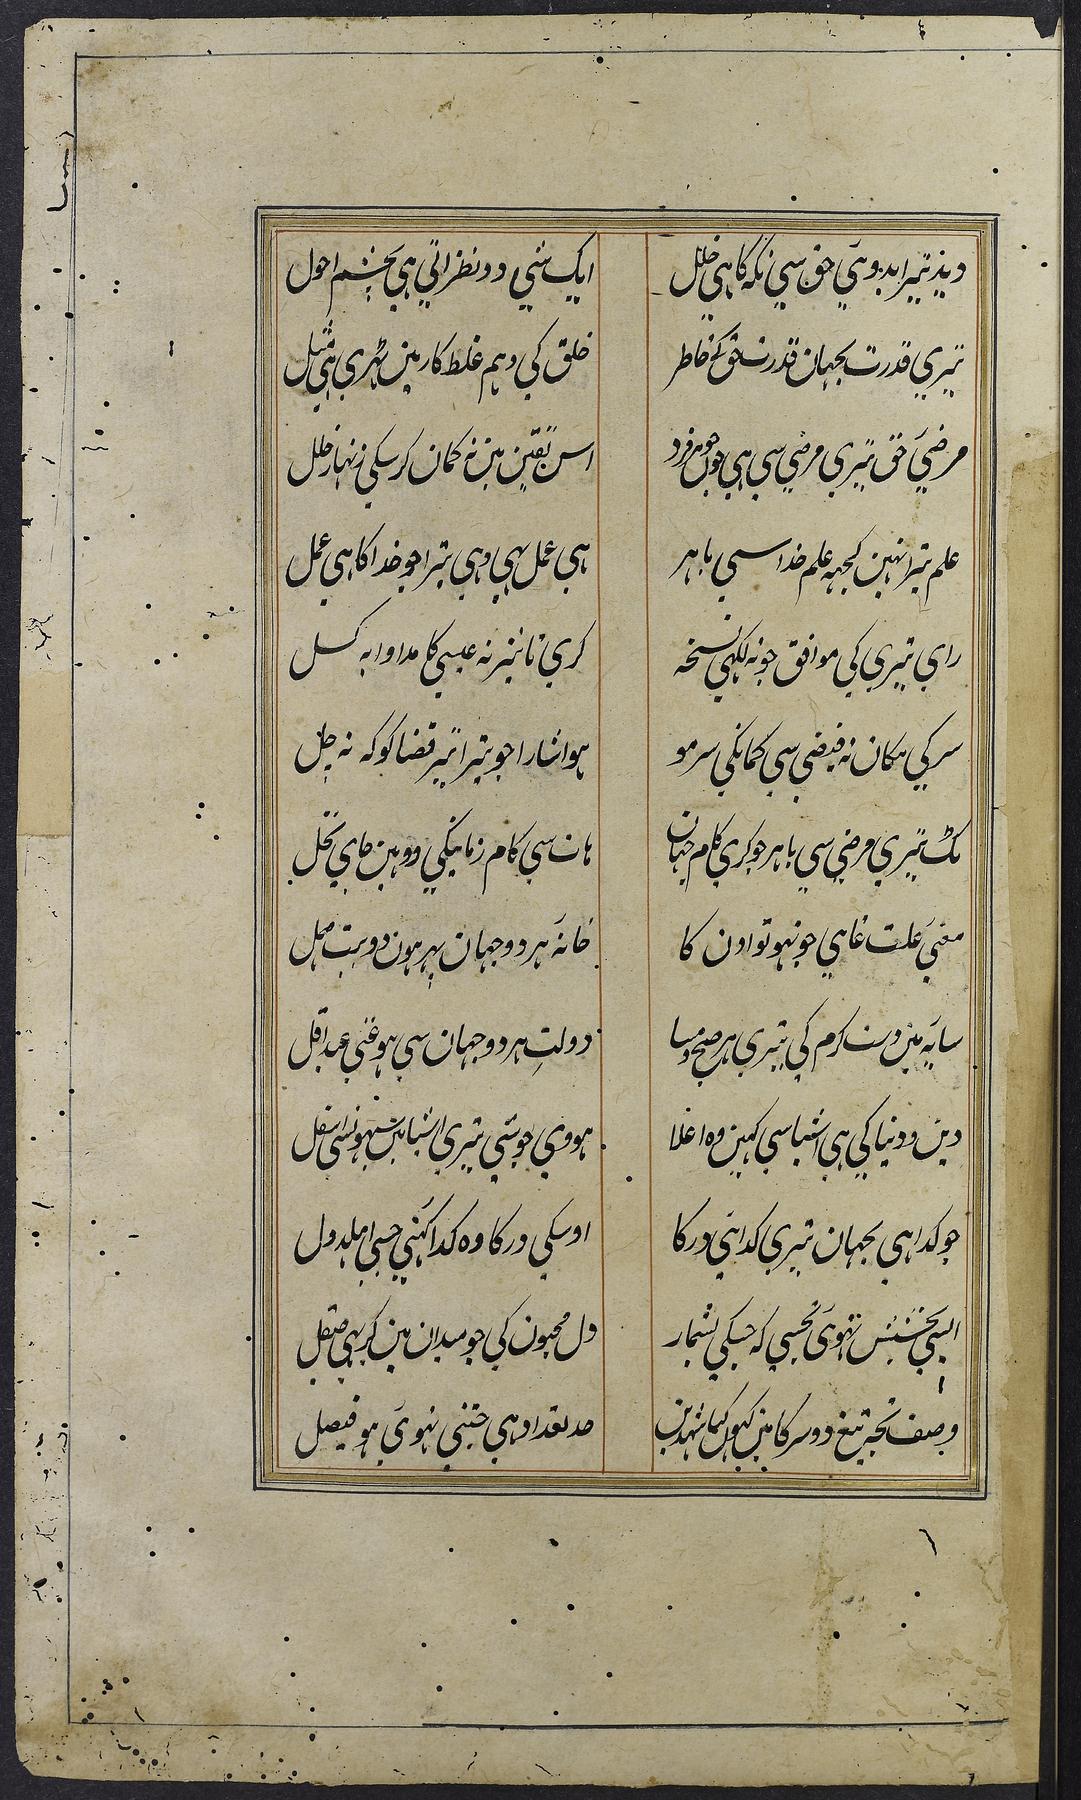 دید تیرا بدوئی حق سی نگہ کا ہی خلل
ایک شی دو نظر اتی ہی بچشم احول
تیری قدرت بجہان قدرت حق کی خاطر
خلق کی وہم غلط کار مین ٹہری ہی مثل
مرضیٔ حق تیری مرضی سی ہی جون جوہر فرد
اس یقین مین نہ گمان کر سکی زنہار خلل
علم تیرا نہین کجہہ علم خدا سی باہر
ہی عمل بہی وہی تیرا جو خدا کا ہی عمل
رای تیری کی موافق جو نہ لکہی نسخہ
کری تاثیر نہ عیسی کا مداوا بہ کسل
سرکی مکان نہ قبضی سی کمانکی سر مو
ہو اشارا جو تیرا تیر قضا کو کہ نہ چل
ٹک تیری مرضی سی باہر جو کری کام جہان
ہات سی کام زمانیکی وو ہین جای نکل
معنیٔ علت غایی جو نہو تو اون کا
خانۂ ہر دو جہان پہر ہون دو بیت مہمل
سایہ مین دست کرم کی تیری ہر صبح و مسا
دولت ہر دو جہان سی ہو غنی عبد اقل
دین و دنیا کی ہی اشیا سی کہین وہ اعلا
ہووی جو شی تیری اشیا مین سبہونسی اسفل
جو گدا ہی بجہان تیری گدا ئی در کا
اوسکی در کا وہ گدا کہئی جسی اہل دول
ایسی بخشش نہوی تجسی کہ جسکی بشمار
دل محبون کی جو میدان مین کر بہی صیقل
وصف تجہ تیغ دو سر کا مین کہون کیا شہ دین
صد تعداد ہی جتنی نہوی ہو فیصل